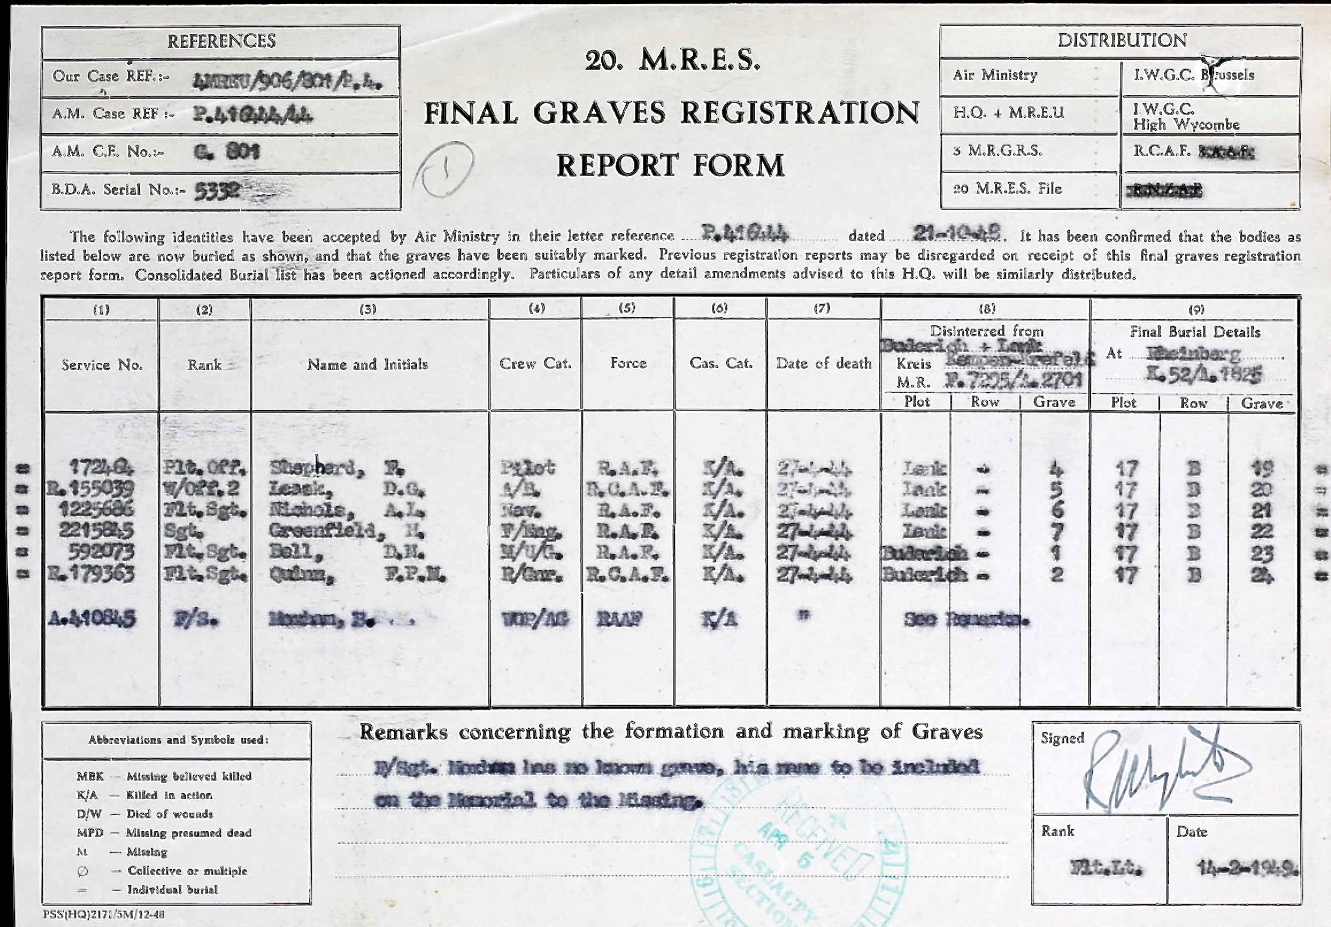 REFERENCES
Our Case REF.:- 4MREU/906/801/P.4.
A.M. Case REF :- P.41644/44
A.M. C.F. No.:- G. 801
B.D.A. Serial No.:- 5332
20. M.R.E.S.
FINAL GRAVES REGISTRATION
REPORT FORM
1
DISTRIBUTION
Air Ministry I.W.G.C. Brussels
H.Q. + M.R.E.U I W.G.C. High Wycombe
3 M.R.G.R.S. R.C.A.F. R.A.A.F.
20 M.R.E.S. File R.N.Z.A.F
The following identities have been accepted by Air Ministry in their letter reference P.41644 dated 21-10-48. It has been confirmed that the bodies as
listed below are now buried as shown, and that the graves have been suitably marked. Previous registration reports may be disregarded on receipt of this final graves registration
report form. Consolidated Burial list has been actioned accordingly. Particulars of any detail amendments advised to this H.Q. will be similarly distributed.
(1) (2) (3) (4) (5) (6) (7) (8) (9)
Service No. Rank Name and Initials Crew Cat. Force Cas. Cat. Date of death
Disinterred from
Buderich + Lank
Kreis Kempen-Krefeld
M.R. F.7295/A.2701
Plot Row Grave
Final Burial Details
At Rheinberg
K.52/A.1825
Plot Row Grave
= 172464 Plt.Off. Shepherd, F. Pilot R.A.F. K/A. 27-4-44 Lank - 4 17 B 19 =
= R.155039 W/Off.2 Leask, D.G. A/B. R.C.A.F. K/A. 27-4-44 Lank - 5 17 B 20 =
= 1225686 Flt.Sgt. Nichols, A.L. Nav. R.A.F. K/A. 27-4-44 Lank - 6 17 B 21 =
= 2215845 Sgt. Greenfield, H. F/Eng. R.A.F. K/A. 27-4-44 Lank - 7 17 B 22 =
= 592073 Flt.Sgt. Bell, D.H. M/U/G. R.A.F. K/A. 27-4-44 Buderich - 1 17 B 23 =
= R.179363 Flt.Sgt. Quinn, F.P.M. R/Gnr. R.C.A.F. K/A. 27-4-44 Buderich - 2 17 B 24 =
A.410845 F/S. Moxham, B. WOP/AG RAAF K/A " See Remarks.
Abbreviations and Symbols used:
MBK — Missing believed killed
K/A — Killed in action
D/W — Died of wounds
MPD — Missing presumed dead
M — Missing
∅ — Collective or multiple
= — Individual burial
PSS(HQ)2171/5M/12-48
Remarks concerning the formation and marking of Graves
F/Sgt. Moxham has no known grave, his name to be included
on the Memorial to the Missing.
RECEIVED
APR 5
CASUALTY
SECTION
Signed
Rank Flt.Lt.
Date 14-2-1949.